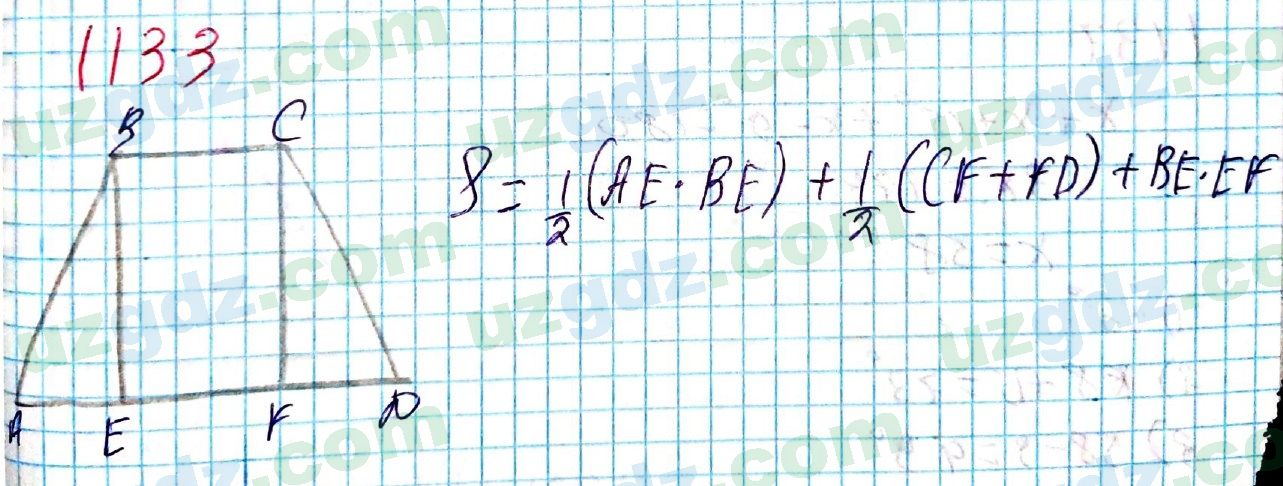 1133
B C
S = 1/2 (AE · BE) + 1/2 (CF + FD) + BE · EF
A E F D
uzgdz.com uzgdz.com uzgdz.com
uzgdz.com uzgdz.com uzgdz.com
uzgdz.com uzgdz.com